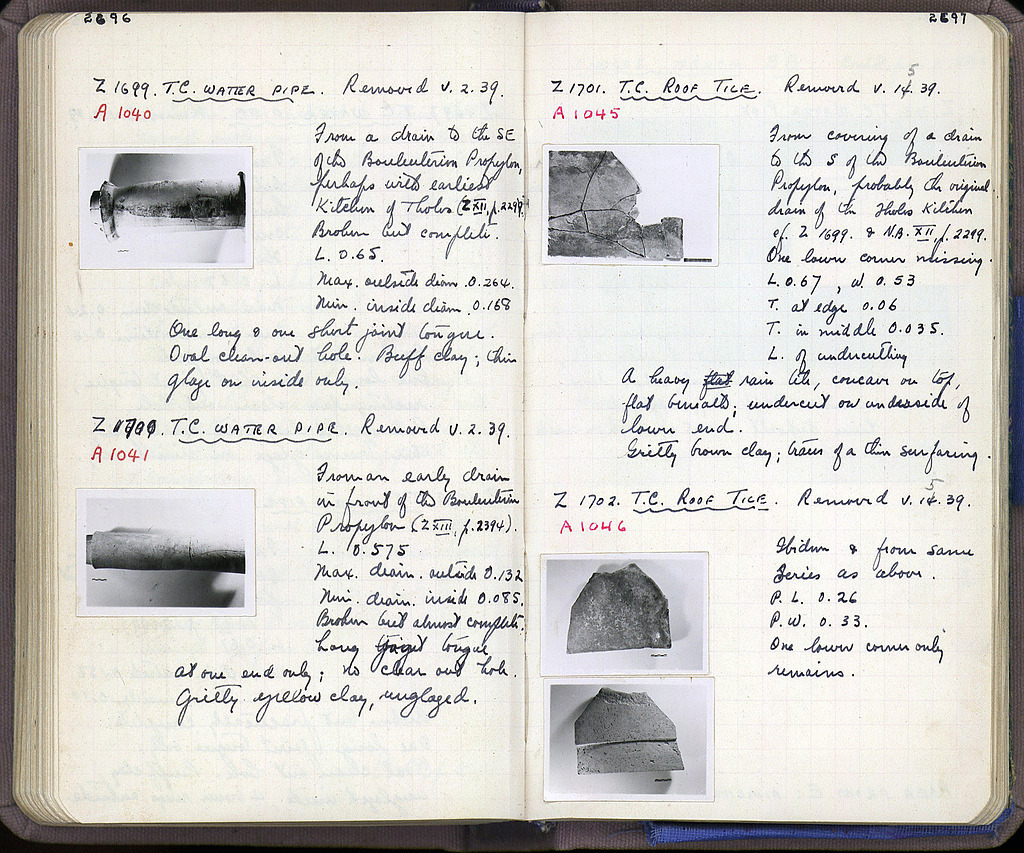 2696
Z 1699. T.C. WATER PIPE. Removed V. 2. 39.
A 1040
From a drain to the SE
of the Bouleuterion Propylon,
perhaps with earliest
Kitchen of Tholos (Z XII, p. 2299)
Broken but complete.
L. 0.65.
Max. outside diam. 0.264.
Min. inside diam. 0.168
One long & one short joint tongue.
Oval clean-out hole. Buff clay; thin
glaze on inside only.
Z 1700. T.C. WATER PIPE. Removed V. 2. 39.
A 1041
From an early drain
in front of the Bouleuterion
Propylon (Z XIII, p. 2394).
L. 0.575
Max. diam. outside 0.132
Min. diam. inside 0.085.
Broken but almost complete.
Long joint tongue
at one end only; no clean out hole.
Gritty yellow clay, unglazed.
2697
Z 1701. T.C. ROOF TILE. Removed V. 15. 39.
A 1045
From covering of a drain
to the S of the Bouleuterion
Propylon, probably the original
drain of the Tholos Kitchen
cf. Z 1699. & N.B. XII, p. 2299.
One lower corner missing.
L. 0.67, W. 0.53
T. at edge 0.06
T. in middle 0.035.
L. of undercutting
A heavy flat rain tile, concave on top,
flat beneath; undercut on underside of
lower end.
Gritty brown clay; traces of a thin surfacing.
Z 1702. T.C. ROOF TILE. Removed V. 15. 39.
A 1046
Ibidem & from same
Series as above.
P. L. 0.26
P. W. 0.33.
One lower corner only
remains.